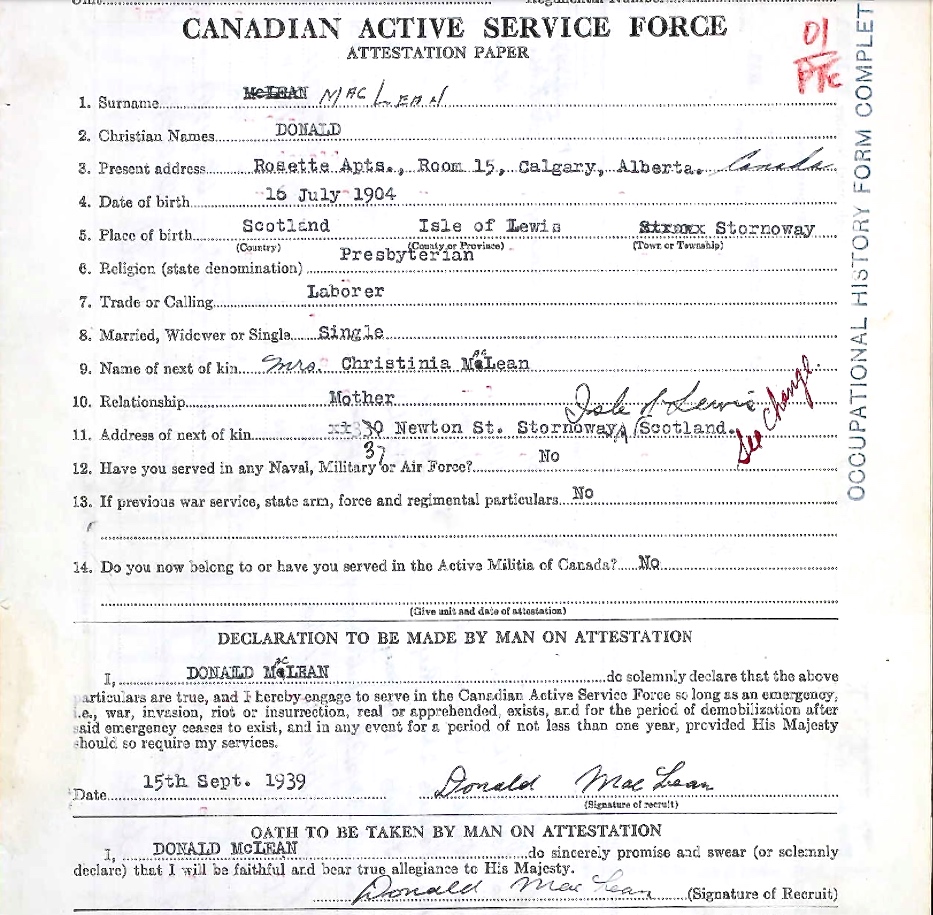 CANADIAN ACTIVE SERVICE FORCE
ATTESTATION PAPER
01
PTC
OCCUPATIONAL HISTORY FORM COMPLET
1. Surname McLEAN MACLEAN
2. Christian Names DONALD
3. Present address Rosette Apts., Room 15, Calgary, Alberta. Canada
4. Date of birth 16 July 1904
5. Place of birth Scotland Isle of Lewis Stornoway
(Country) (County or Province) (Town or Township)
6. Religion (state denomination) Presbyterian
7. Trade or Calling Laborer
8. Married, Widower or Single Single
9. Name of next of kin Mrs. Christinia MacLean
10. Relationship Mother
Isle of Lewis
11. Address of next of kin 30 Newton St. Stornoway, Scotland.
See change.
37
12. Have you served in any Naval, Military or Air Force? No
13. If previous war service, state arm, force and regimental particulars No
14. Do you now belong to or have you served in the Active Militia of Canada? No
(Give unit and date of attestation)
DECLARATION TO BE MADE BY MAN ON ATTESTATION
I, DONALD MacLEAN do solemnly declare that the above
particulars are true, and I hereby engage to serve in the Canadian Active Service Force so long as an emergency,
i.e., war, invasion, riot or insurrection, real or apprehended, exists, and for the period of demobilization after
said emergency ceases to exist, and in any event for a period of not less than one year, provided His Majesty
should so require my services.
Date 15th Sept. 1939 Donald MacLean
(Signature of recruit)
OATH TO BE TAKEN BY MAN ON ATTESTATION
I, DONALD McLEAN do sincerely promise and swear (or solemnly
declare) that I will be faithful and bear true allegiance to His Majesty.
Donald MacLean (Signature of Recruit)